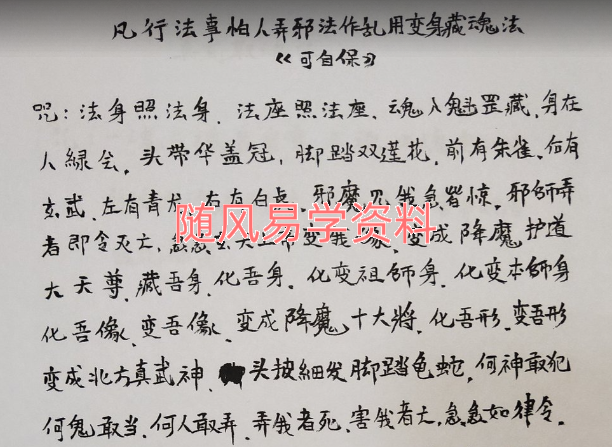 凡行法事怕人弄邪法作乱用变身藏魂法
《可自保》
咒：法身照法身、法座照法座、魂入魁罡藏、身在
人緑会、头带华盖冠，脚踏双莲花，前有朱雀、后有
玄武、左有青龙、右有白虎、邪魔见我急皆惊、邪师弄
者即令灭亡、急急玄天上帝变我像、变成降魔护道
大天尊、藏吾身、化吾身、化变祖師身、化变本師身
化吾像、变吾像、变成降魔十大將、化吾形、变吾形
变成北方真武神、头披細发脚踏龟蛇，何神敢犯
何鬼敢当、何人敢弄、弄我者死、害我者亡、急急如律令。
随风易学资料